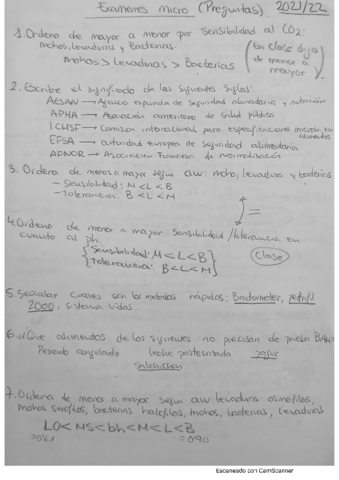 Exámenes micro (Preguntas) 2021/22
1. Ordena de mayor a menor por sensibilidad al CO2:
Mohos, levaduras y Bacterias.
Mohos > Levaduras > Bacterias
(En clase dijo de menor a mayor)
2. Escribe el significado de las siguientes siglas:
AESAN → Agencia española de seguridad alimentaria y nutrición
APHA → Asociación americana de salud pública
ICMSF → Comision internacional para especificaciones
alimentos
EFSA → autoridad europea de seguridad alimentaria
AFNOR → Asociacion francesa de normalización
3. Ordena de menos a mayor según aw: moho, levadura y bacterias
- Sensibilidad: M < L < B
- Tolerancia: B < L < M
=
4. Ordena de menor a mayor sensibilidad / tolerancia en
cuanto al ph.
Sensibilidad: M < L < B
Tolerancia: B < L < M
Clase
5. Señalar cuales son los metodos rápidos: Bactometer, petrifil
2000, sistema vidas.
6. ¿Que alimentos de los siguientes no precisan de prueba
Pescado congelado leche pasteurizada yogur
salchichon
7. Ordena de menos a mayor según aw: levaduras osmofilas,
mohos xerofilos, bacterias halofilas, mohos, bacterias, levaduras
LO < MS < bh < M < L < B
=0'61 =0'90
Escaneado con CamScanner